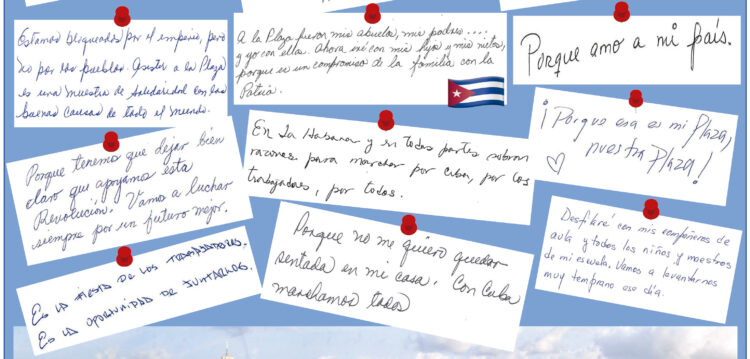 Estamos bloqueados por el imperio, pero
no por los pueblos. Asistir a la Plaza
es una muestra de solidaridad con las
buenas causas de todo el mundo.
A la Plaza fueron mis abuelos, mis padres....
y yo con ellos. Ahora iré con mis hijos y mis nietos,
porque es un compromiso de la familia con la
Patria.
Porque amo a mi país.
Porque tenemos que dejar bien
claro que apoyamos esta
Revolución. Vamos a luchar
siempre por un futuro mejor.
En La Habana y en todas partes sobran
razones para marchar por Cuba, por los
trabajadores, por todos.
¡Porque esa es mi Plaza,
nuestra Plaza!
Es la fiesta de los trabajadores.
Es la oportunidad de juntarnos.
Porque no me quiero quedar
sentada en mi casa. Con Cuba
marchamos todos
Desfilaré con mis compañeros de
aula y todos los niños y maestros
de mi escuela. Vamos a levantarnos
muy temprano ese día.